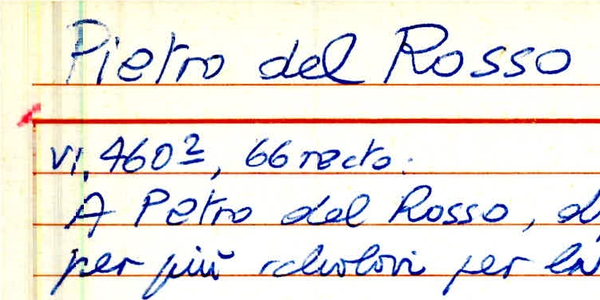 Pietro del Rosso
VI, 460², 66 recto.
A Petro del Rosso, d
per più per la